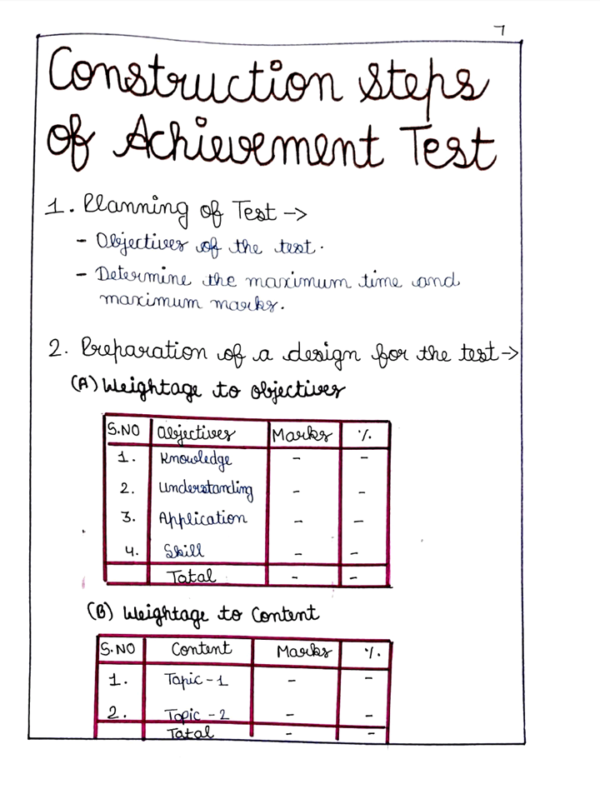 7
Construction Steps
of Achievement Test
1. Planning of Test →
- Objectives of the test.
- Determine the maximum time and
maximum marks.
2. Preparation of a design for the test →
(A) Weightage to objectives
S.NO Objectives Marks %.
1. Knowledge - -
2. Understanding - -
3. Application - -
4. Skill - -
Total - -
(B) Weightage to Content
S.NO Content Marks %.
1. Topic-1 - -
2. Topic-2 - -
Total - -